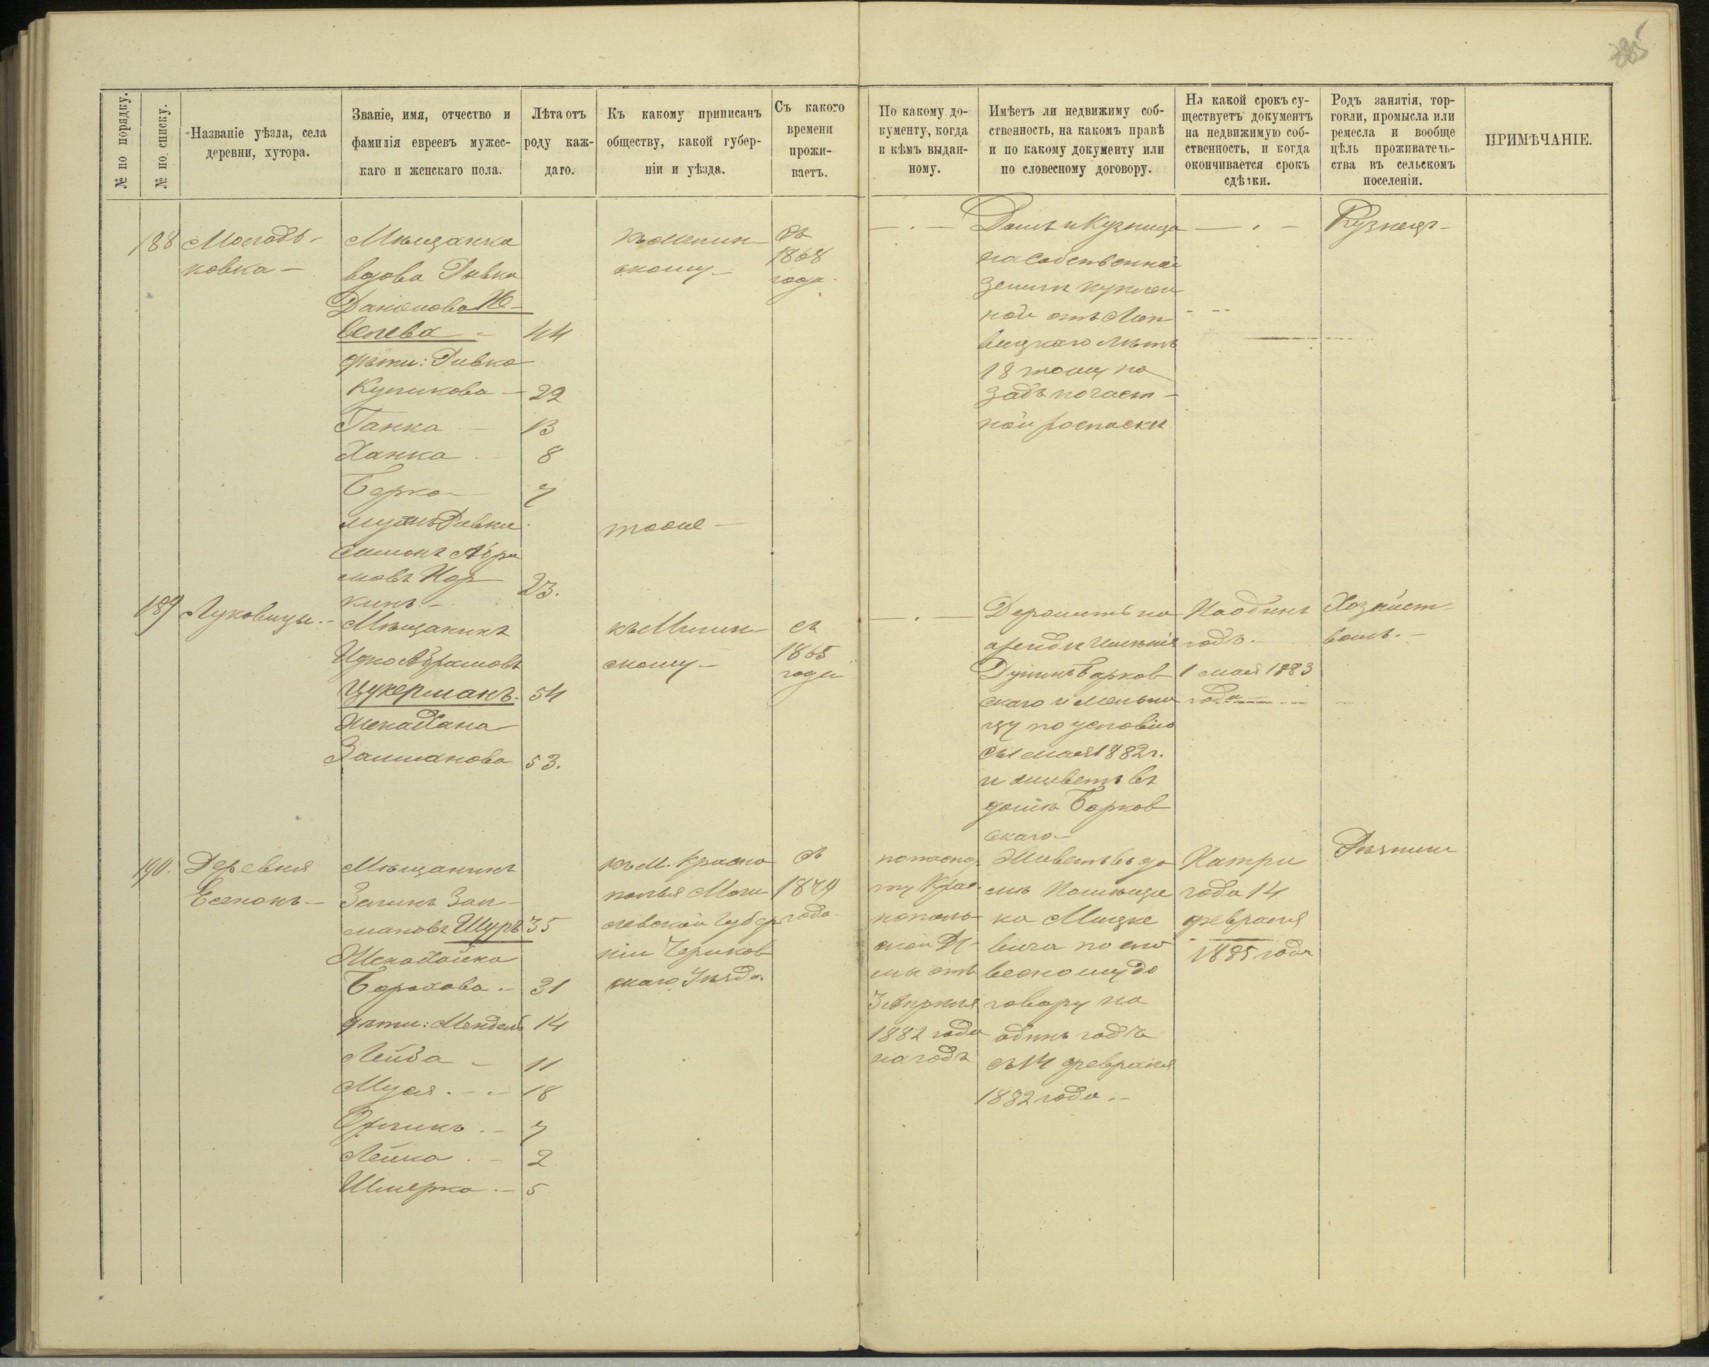 285
№ по порядку.
№ по списку.
Названіе уѣзда, села
деревни, хутора.
Званіе, имя, отчество и
фамилія евреевъ мужес-
каго и женскаго пола.
Лѣта отъ
роду каж-
даго.
Къ какому приписанъ
обществу, какой губер-
ніи и уѣзда.
Съ какого
времени
прожи-
ваетъ.
По какому до-
кументу, когда
и кѣмъ выдан-
ному.
Имѣетъ ли недвижиму соб-
ственность, на какомъ правѣ
и по какому документу или
по словесному договору.
На какой срокъ су-
ществуетъ документъ
на недвижимую соб-
ственность, и когда
окончивается срокъ
сдѣлки.
Родъ занятія, тор-
говли, промысла или
ремесла и вообще
цѣль проживатель-
ства въ сельскомъ
поселеніи.
ПРИМѢЧАНІЕ.
188
ковка —
Мѣщанка
вдова Ривка
44
дѣти: Ривка
Куликова — 22
Ганка — 13
Ханка — 8
Берка — 7
мужъ Ривки
Симонъ Абра
мовъ
кинъ —
23.
скому —
тоже —
Съ
1868
года
Домъ и Кузница
на собственной
земли куплен
ной отъ
вицкаго лѣтъ
18 тому на
задъ по част —
ной росписки
Кузнецъ —
189
Луковицы. —
Мѣщанинъ
Ицко Абрамовъ
Цукерманъ. 54
Жена Хана
Залманова 53.
къ Минин
скому —
съ
1865
года
Держитъ на
аренди имѣнія
Барков
скаго и мельни
цу по условію
съ 1 мая 1882 г.
и живетъ въ
домѣ Барков
скаго —
На одинъ
годъ. —
1 мая 1883
года —
Хозяйст-
вомъ. —
190.
Деревня
Мѣщанинъ
Зеликъ Зал —
мановъ Шуръ 35
Жена Хайка
Борохова. — 31
дѣти: Мендель 14
Лейба — 11
Муся. — 18
7
Лейка . — 2
Шмерка. — 5
къ М. Красно
полья Моги
левской Губер
ніи Чериков
скаго Уѣзда.
съ
1879
года
по паспор
ту Крас
нополь
ской
мы отъ
3 Апрѣля
1882 года
на годъ
Живетъ въ до
мѣ Помѣщи
ка Мицке
вича по сло
весному до
говору на
одинъ годъ
съ 14 февраля
1882 года. —
На три
года 14
февраля
1885 года